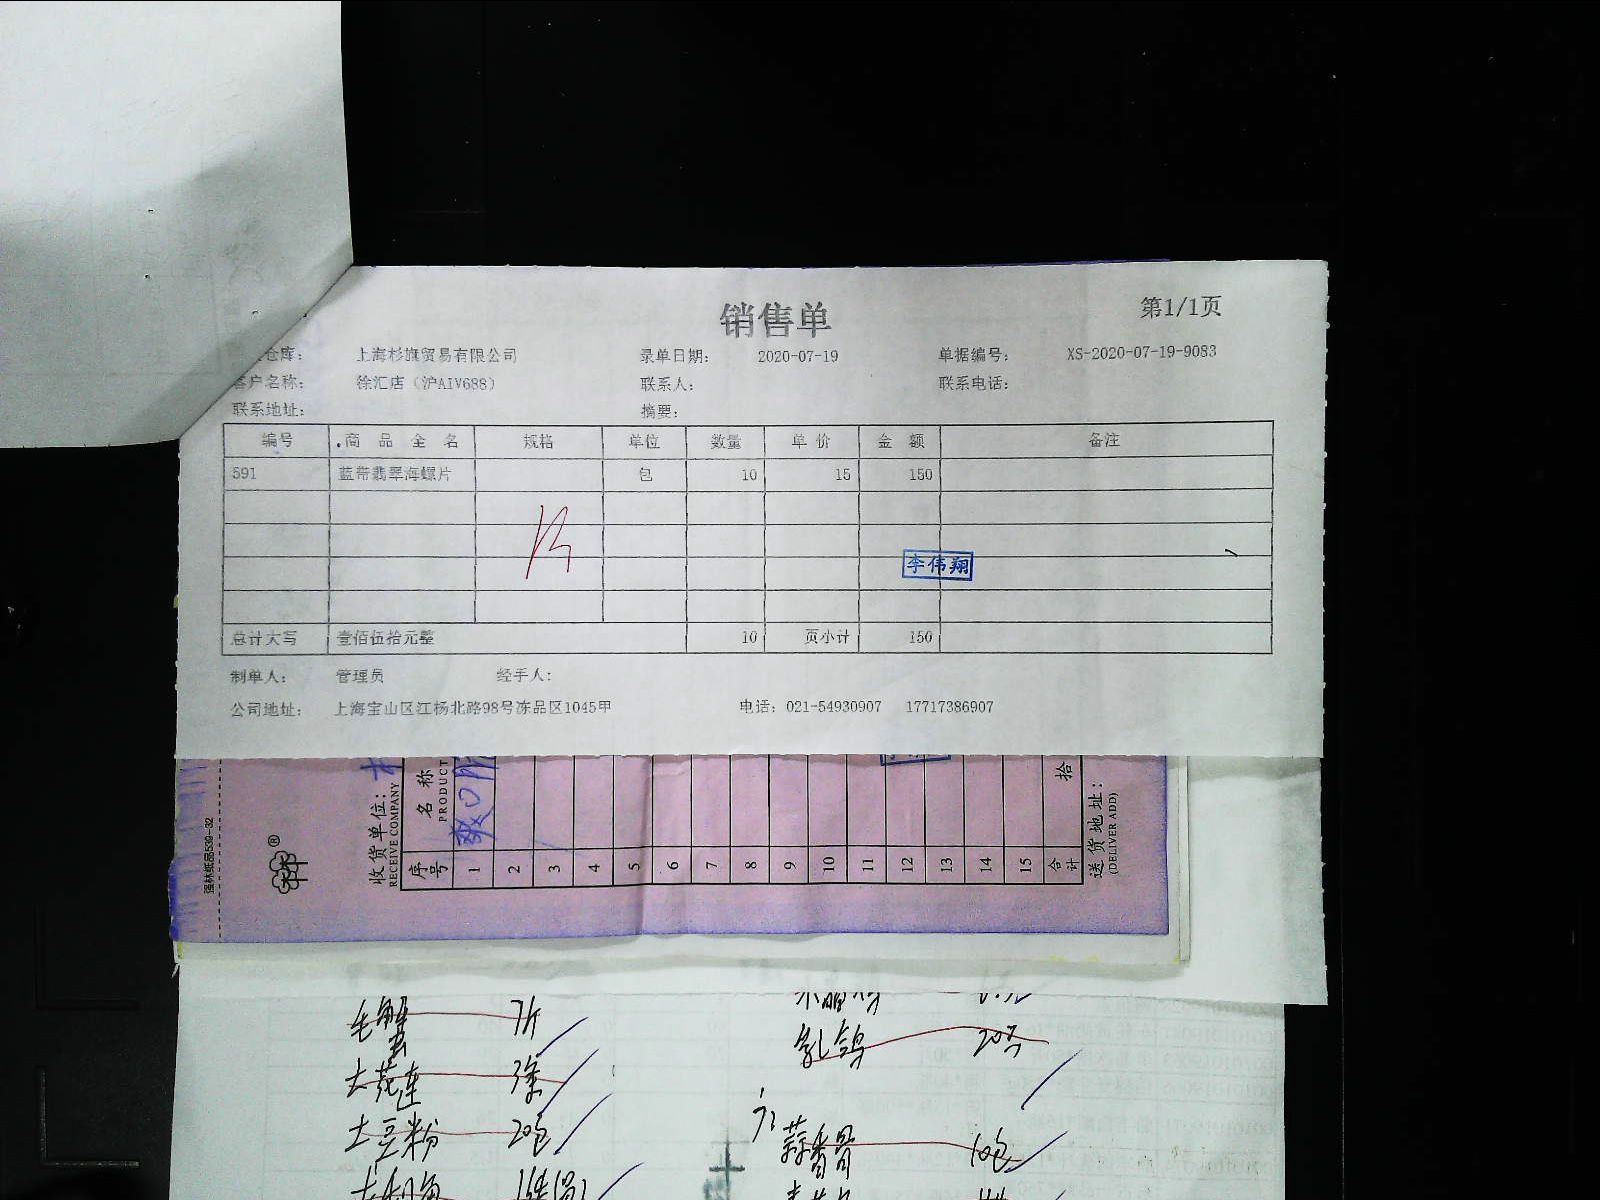 销售单
第1/1页
仓库： 上海杉旗贸易有限公司 录单日期： 2020-07-19 单据编号： XS-2020-07-19-9083
客户名称： 徐汇店（沪AIV688） 联系人： 联系电话：
联系地址： 摘要：
编号 商品全名 规格 单位 数量 单价 金额 备注
591 蓝带翡翠海螺片 包 10 15 150
李伟翔
总计大写 壹佰伍拾元整 10 页小计 150
制单人： 管理员 经手人：
公司地址： 上海宝山区江杨北路98号冻品区1045甲 电话：021-54930907 17717386907
强林纸品539-32
收货单位：
RECEIVE COMPANY
序号 名称
PRODUCT
1 爽口
2
3
4
5
6
7
8
9
10
11
12
13
14
15
合计 拾
送货地址：
(DELIVER ADD)
毛蟹 7斤
大花莲 3条
土豆粉 20包
乳鸽 20只
蒜香骨 10包